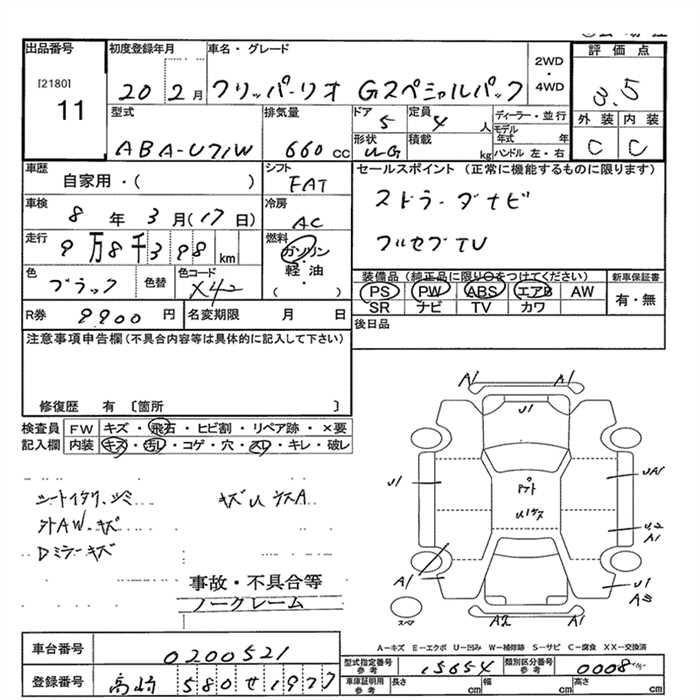 出品番号 初度登録年月 車名・グレード
[2180]
11
20 2月 フリッパーリオ Gスペシャルパック
2WD・4WD
評価点
3.5
外装 内装
C C
型式 排気量 ドア 定員 ディーラー・並行
ABA-U71W 660cc 5 4人
モデル年式 年
形状 積載 ハンドル 左・右
kg
車歴 シフト セールスポイント (正常に機能するものに限ります)
自家用・( ) FAT
車検 冷房
8年3月(17日) AC
フルセブTV
走行 燃料
9万8千398km ガソリン・軽油・( )
色 色替 色コード
ブラック X42
装備品 (純正品に限り○をつけてください) 新車保証書
PS PW ABS エアB AW 有・無
SR ナビ TV カワ
R券 9900円 名変期限 月 日
後日品
注意事項申告欄(不具合内容等は具体的に記入して下さい)
修復歴 有 〔箇所 〕
検査員 FW キズ・飛石・ヒビ割・リペア跡・×要
記入欄 内装 キズ・汚レ・コゲ・穴・スレ・キレ・破レ
外AW.キズ
Dミラーキズ
事故・不具合等
ノークレーム
A1 A1
U1
U1 UA1
U2
A1
A1 U1
A2 A1
スペア
A-キズ E-エクボ U-凹み W-補修跡 S-サビ C-腐食 XX-交換済
車台番号 0200521
型式指定番号 参考 15654 類別区分番号 参考 0008
登録番号 高崎 580 せ 1977
車庫証明用 参考 長さ cm 幅 cm 高さ cm